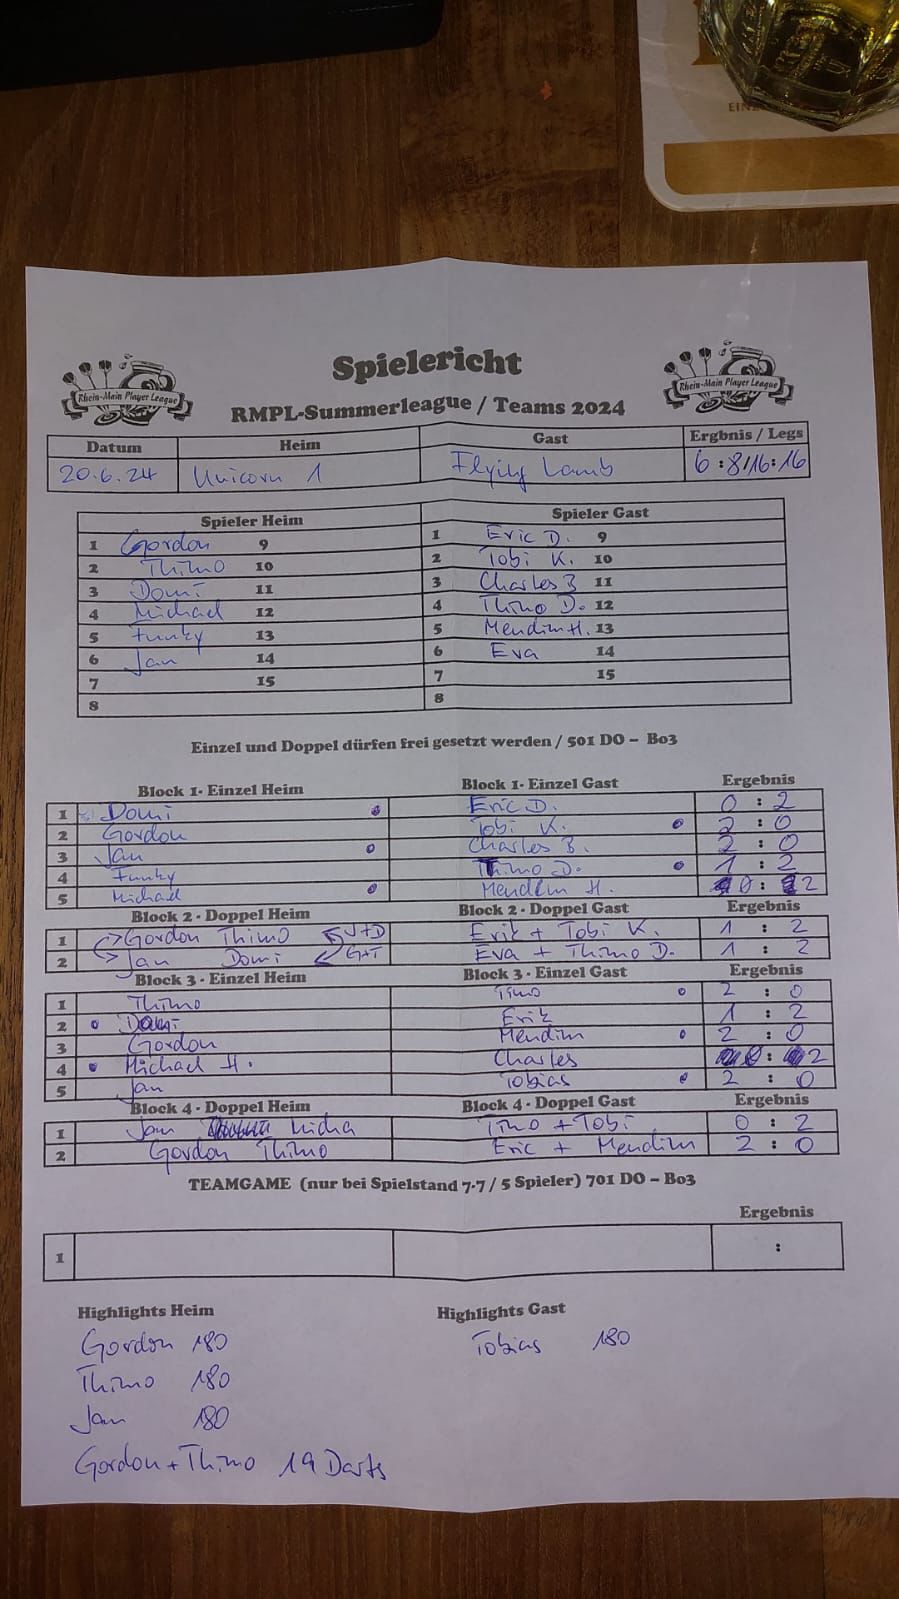 EIN
Spielericht
Rhein-Main Player League
Rhein-Main Player League
RMPL-Summerleague / Teams 2024
Datum Heim Gast Ergbnis / Legs
20.6.24 Unicorn 1 Flying Lamb 6:8/16:16
Spieler Heim Spieler Gast
1 Gordon 9 1 Eric D. 9
2 Thimo 10 2 Tobi K. 10
3 Domi 11 3 Charles B 11
4 Michael 12 4 Thimo D. 12
5 Funky 13 5 Mendim H. 13
6 Jan 14 6 Eva 14
7 15 7 15
8 8
Einzel und Doppel dürfen frei gesetzt werden / 501 DO – Bo3
Block 1- Einzel Heim Block 1- Einzel Gast Ergebnis
1 Domi Eric D. 0 : 2
2 Gordon Tobi K. 2 : 0
3 Jan Charles B. 2 : 0
4 Funky Thimo D. 1 : 2
5 Michael Mendim H. 0 : 2
Block 2 - Doppel Heim Block 2 - Doppel Gast Ergebnis
1 Gordon Thimo J+D Erik + Tobi K. 1 : 2
2 Jan Domi G+T Eva + Thimo D. 1 : 2
Block 3 - Einzel Heim Block 3 - Einzel Gast Ergebnis
1 Thimo Timo 2 : 0
2 Domi Erik 1 : 2
3 Gordon Mendim 2 : 0
4 Michael H. Charles 0 : 2
5 Jan Tobias 2 : 0
Block 4 - Doppel Heim Block 4 - Doppel Gast Ergebnis
1 Jan Micha Timo + Tobi 0 : 2
2 Gordon Thimo Eric + Mendim 2 : 0
TEAMGAME (nur bei Spielstand 7-7 / 5 Spieler) 701 DO – Bo3
Ergebnis
1 :
Highlights Heim Highlights Gast
Gordon 180 Tobias 180
Thimo 180
Jan 180
Gordon + Thimo 19 Darts